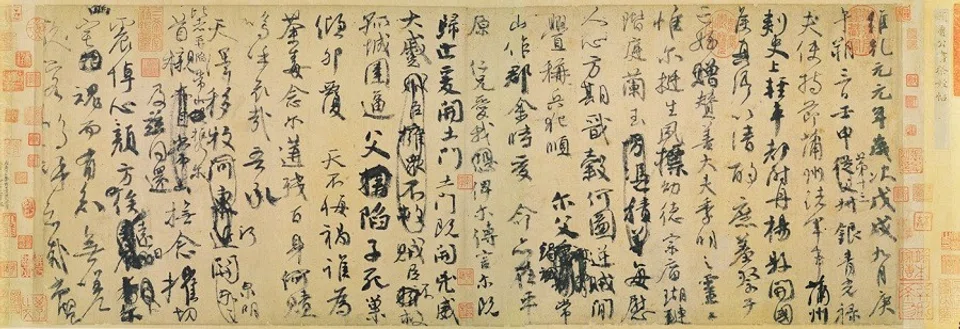 維乾元元年歲次戊戌九月庚
午朔三日壬申第十三叔銀青光祿
夫使持節蒲州諸軍事蒲州
刺史上輕車都尉丹楊縣開國
侯真卿以清酌庶羞祭于
亡姪贈贊善大夫季明之靈曰
惟爾挺生夙標幼德宗廟瑚璉
階庭蘭玉方憑積善每慰
人心方期戩穀何圖逆賊閒
釁稱兵犯順爾父竭誠常
山作郡余時受命亦在平
原仁兄愛我俾爾傳言爾既
歸止爰開土門土門既開凶威
大蹙賊臣擁眾不救賊臣不救
孤城圍逼父陷子死巢
傾卵覆天不悔禍誰為
荼毒念爾遘殘百身何贖
嗚乎哀哉吾承
天澤移牧河關泉明
比者再陷常山攜爾
首櫬及茲同還撫念摧切
震悼心顏方俟遠日卜爾幽
宅魂而有知無嗟
久客嗚呼哀哉尚饗